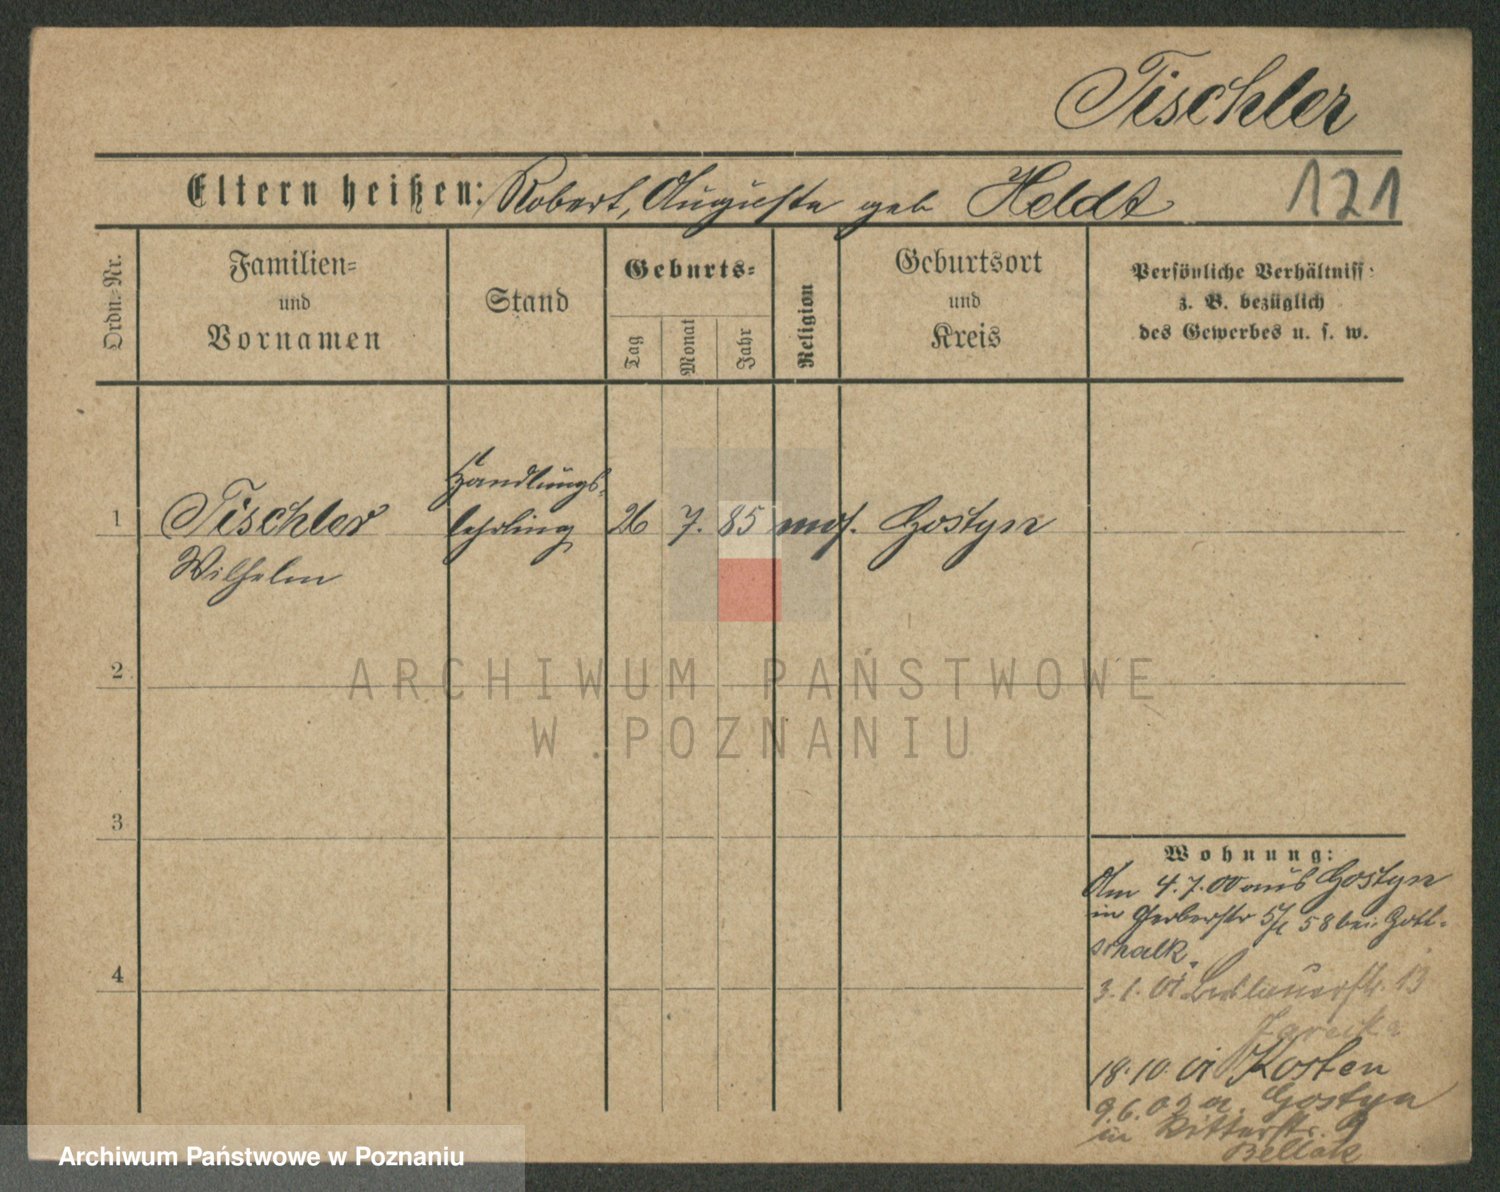 Tischler
Eltern heißen: Robert, Auguste geb Heldt
121
Ordn.-Nr.
Familien-
und
Vornamen
Stand
Geburts-
Tag
Monat
Jahr
Religion
Geburtsort
und
Kreis
Persönliche Verhältniss
z. B. bezüglich
des Gewerbes u. s. w.
1
Tischler
Wilhelm
Handlungs-
lehrling
26
7.
85
mos.
Gostyn
2
3
4
ARCHIWUM PAŃSTWOWE
W POZNANIU
Wohnung:
Am 4.7.00 aus Gostyn
in Gerberstr 5/6 58 bei Gott-
schalk.
3.1.01 Breslauerstr. 13
18.10.01 Kosten
9.6.02 a. Gostyn
in Ritterstr. 9
Archiwum Państwowe w Poznaniu